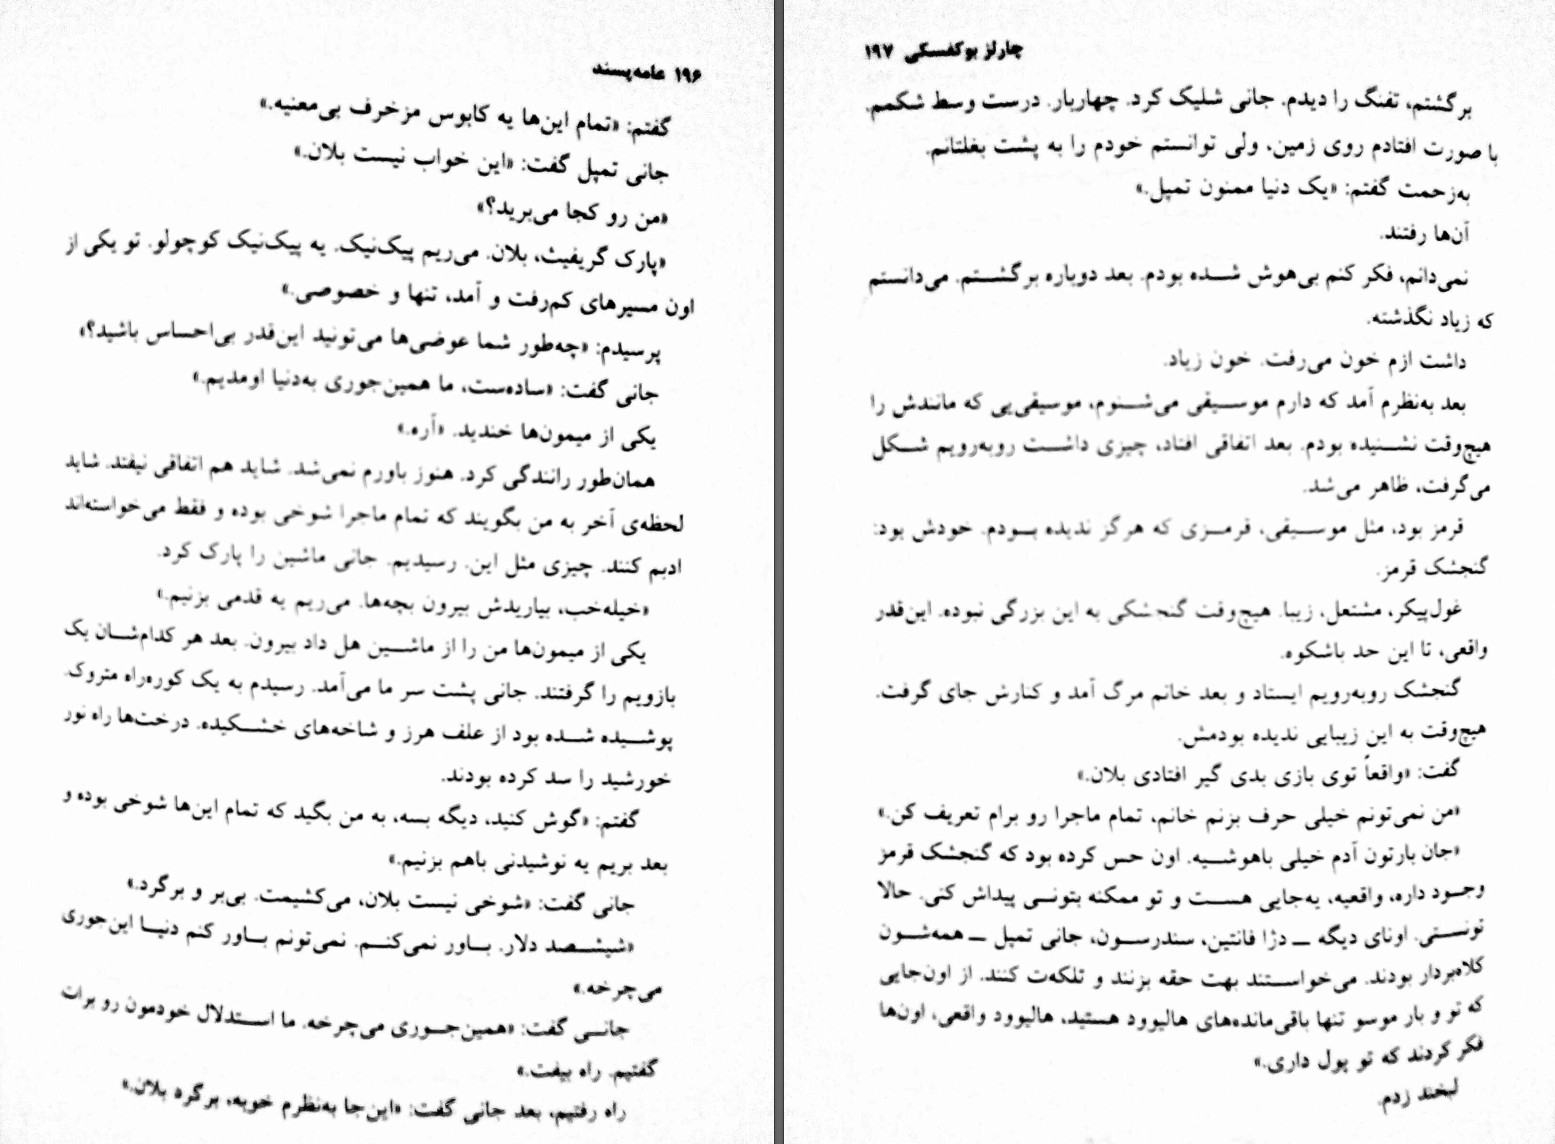 ۱۹۶ عامه‌پسند
گفتم: «تمام این‌ها یه کابوس مزخرف بی‌معنیه.»
جانی تمپل گفت: «این خواب نیست بلان.»
«من رو کجا می‌برید؟»
«پارک گریفیث، بلان. می‌ریم پیک‌نیک. یه پیک‌نیک کوچولو. تو یکی از
اون مسیرهای کم‌رفت و آمد، تنها و خصوصی.»
پرسیدم: «چه‌طور شما عوضی‌ها می‌تونید این‌قدر بی‌احساس باشید؟»
جانی گفت: «ساده‌ست، ما همین‌جوری به‌دنیا اومدیم.»
یکی از میمون‌ها خندید. «آره.»
همان‌طور رانندگی کرد. هنوز باورم نمی‌شد. شاید هم اتفاقی نیفتد. شاید
لحظه‌ی آخر به من بگویند که تمام ماجرا شوخی بوده و فقط می‌خواسته‌اند
ادبم کنند. چیزی مثل این. رسیدیم. جانی ماشین را پارک کرد.
«خیله‌خب، بیاریدش بیرون بچه‌ها. می‌ریم یه قدمی بزنیم.»
یکی از میمون‌ها من را از ماشین هل داد بیرون. بعد هر کدام‌شان یک
بازویم را گرفتند. جانی پشت سر ما می‌آمد. رسیدم به یک کوره‌راه متروک.
پوشیده شده بود از علف هرز و شاخه‌های خشکیده. درخت‌ها راه نور
خورشید را سد کرده بودند.
گفتم: «گوش کنید، دیگه بسه، به من بگید که تمام این‌ها شوخی بوده و
بعد بریم یه نوشیدنی باهم بزنیم.»
جانی گفت: «شوخی نیست بلان، می‌کشیمت. بی‌بر و برگرد.»
«شیشصد دلار. باور نمی‌کنم. نمی‌تونم باور کنم دنیا این‌جوری
می‌چرخه.»
جانی گفت: «همین‌جوری می‌چرخه. ما استدلال خودمون رو برات
گفتیم. راه بیفت.»
راه رفتیم، بعد جانی گفت: «این‌جا به‌نظرم خوبه، برگرد بلان.»
چارلز بوکفسکی ۱۹۷
برگشتم، تفنگ را دیدم. جانی شلیک کرد. چهاربار. درست وسط شکمم.
با صورت افتادم روی زمین، ولی توانستم خودم را به پشت بغلتانم.
به‌زحمت گفتم: «یک دنیا ممنون تمپل.»
آن‌ها رفتند.
نمی‌دانم، فکر کنم بی‌هوش شده بودم. بعد دوباره برگشتم. می‌دانستم
که زیاد نگذشته.
داشت ازم خون می‌رفت. خون زیاد.
بعد به‌نظرم آمد که دارم موسیقی می‌شنوم، موسیقی‌یی که مانندش را
هیچ‌وقت نشنیده بودم. بعد اتفاقی افتاد، چیزی داشت روبه‌رویم شکل
می‌گرفت، ظاهر می‌شد.
قرمز بود، مثل موسیقی، قرمزی که هرگز ندیده بودم. خودش بود:
گنجشک قرمز.
غول‌پیکر، مشتعل، زیبا. هیچ‌وقت گنجشکی به این بزرگی نبوده. این‌قدر
واقعی، تا این حد باشکوه.
گنجشک روبه‌رویم ایستاد و بعد خانم مرگ آمد و کنارش جای گرفت.
هیچ‌وقت به این زیبایی ندیده بودمش.
گفت: «واقعاً توی بازی بدی گیر افتادی بلان.»
«من نمی‌تونم خیلی حرف بزنم خانم، تمام ماجرا رو برام تعریف کن.»
«جان بارتون آدم خیلی باهوشیه. اون حس کرده بود که گنجشک قرمز
وجود داره، واقعیه، یه‌جایی هست و تو ممکنه بتونی پیداش کنی. حالا
تونستی. اونای دیگه ــ دژا فانتین، سندرسون، جانی تمپل ــ همه‌شون
کلاه‌بردار بودند. می‌خواستند بهت حقه بزنند و تلکه‌ت کنند. از اون‌جایی
که تو و بار موسو تنها باقی‌مانده‌های هالیوود هستید، هالیوود واقعی، اون‌ها
فکر کردند که تو پول داری.»
لبخند زدم.